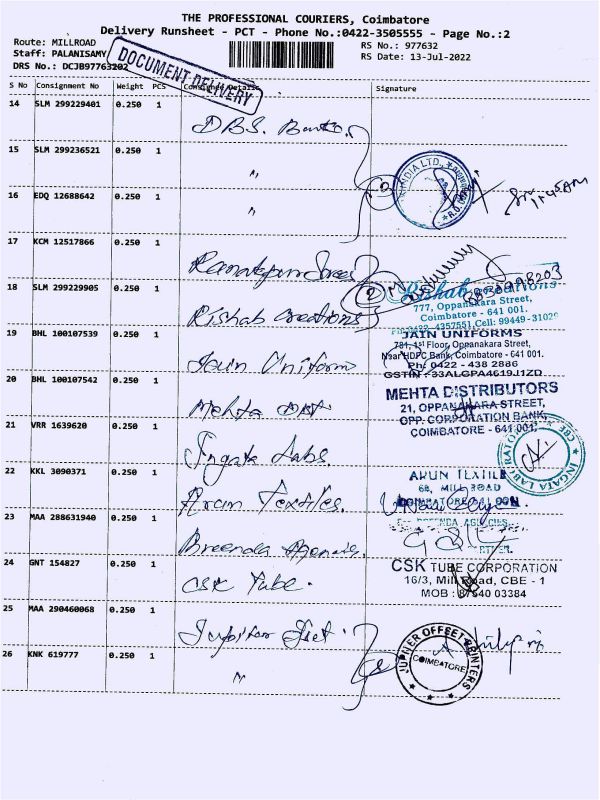 THE PROFESSIONAL COURIERS, Coimbatore
Delivery Runsheet - PCT - Phone No.:0422-3505555 - Page No.:2
Route: MILLROAD
RS No.: 977632
Staff: PALANISAMY
RS Date: 13-Jul-2022
DRS No.: DCJB97763202
DOCUMENT DELIVERY
S No Consignment No Weight PCS Consignee Details Signature
14 SLM 299229401 0.250 1
DBS. Bank.
15 SLM 299236521 0.250 1
"
INDIA LTD.,
16 EDQ 12688642 0.250 1
"
11:45AM
17 KCM 12517866 0.250 1
18 SLM 299229905 0.250 1
Rishab Creations
2
Rishab Creations
777, Oppanakara Street,
Coimbatore - 641 001.
4357551, Cell: 99449-31029
19 BHL 100107539 0.250 1
Jain Uniform
JAIN UNIFORMS
781, 1st Floor, Oppanakara Street,
Near HDFC Bank, Coimbatore - 641 001.
Ph: 0422 - 438 2886
GSTIN : 33ALGPA4619J1ZD
20 BHL 100107542 0.250 1
Mehta Dist
MEHTA DISTRIBUTORS
21, OPPANAKARA STREET,
OPP. CORPORATION BANK,
COIMBATORE - 641 001.
21 VRR 1639620 0.250 1
Ingata Labs.
INGATA LABORATORY CBE
22 KKL 3090371 0.250 1
Arun Textiles.
ARUN TEXTILE
68, MILL ROAD
COIMBATORE-641 001
23 MAA 288631940 0.250 1
Breenda Agencies.
BREENDA AGENCIES
24 GNT 154827 0.250 1
CSK Tube.
CSK TUBE CORPORATION
16/3, Mill Road, CBE - 1
MOB : 87540 03384
25 MAA 290460068 0.250 1
Jupiter
JUPITER OFFSET PRINTERS
COIMBATORE
26 KNK 619777 0.250 1
"